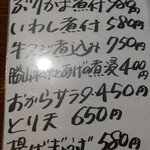 ぶりかま煮付
いわし煮付 580円
牛スジ煮込み 750円
あげの煮浸 400円
おからサラダ 450円
とり天 650円
揚げぎょうざ 580円